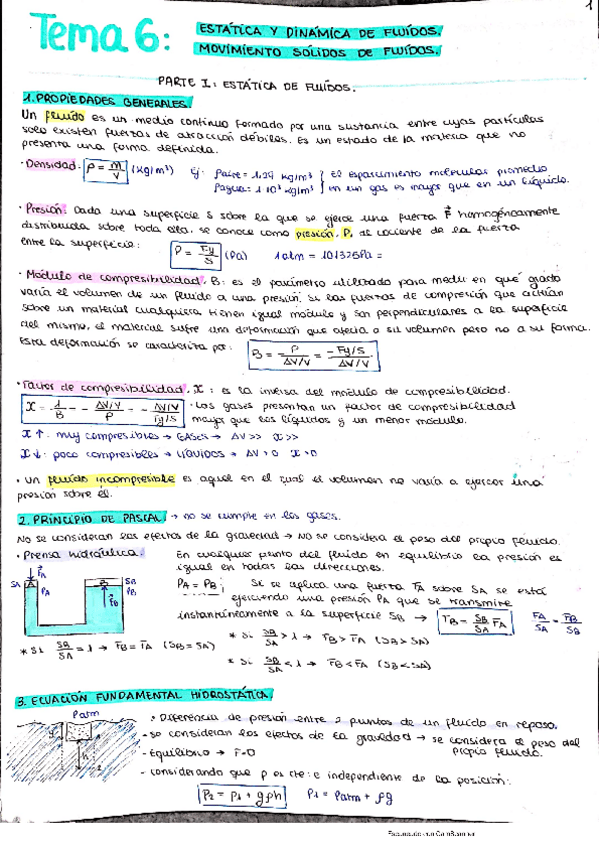 1
Tema 6: ESTÁTICA Y DINÁMICA DE FLUÍDOS.
MOVIMIENTO SÓLIDOS DE FLUÍDOS.
PARTE I: ESTÁTICA DE FLUÍDOS.
1. PROPIEDADES GENERALES.
Un fluido es un medio continuo formado por una sustancia entre cuyas partículas
solo existen fuerzas de atracción débiles. Es un estado de la materia que no
presenta una forma definida.
· Densidad. ρ = m/V (kg/m³) Ej: ρaire = 1.29 kg/m³ } el esparcimiento molecular promedio
ρagua = 1·10³ kg/m³ } en un gas es mayor que en un líquido.
· Presión: Dada una superficie S sobre la que se ejerce una fuerza F homogéneamente
distribuida sobre toda ella, se conoce como presión, P, al cociente de la fuerza
entre la superficie: P = Fy/S (Pa) 1 atm = 101325 Pa =
· Módulo de compresibilidad, B: es el parámetro utilizado para medir en qué grado
varía el volumen de un fluido a una presión. Si las fuerzas de compresión que actúan
sobre un material cualquiera tienen igual módulo y son perpendiculares a la superficie
del mismo, el material sufre una deformación que afecta a su volumen pero no a su forma.
Esta deformación se caracteriza por: B = - P/ΔV/V = - Fy/S/ΔV/V
· Factor de compresibilidad, X: es la inversa del módulo de compresibilidad.
X = 1/B = - ΔV/V/P = - ΔV/V/Fy/S · Los gases presentan un factor de compresibilidad
mayor que los líquidos y un menor módulo.
X ↑: muy compresibles → GASES → ΔV >> X >>
X ↓: poco compresibles → LÍQUIDOS → ΔV → 0 X → 0
· Un fluido incompresible es aquel en el cual el volumen no varía a ejercer una
presión sobre él.
2. PRINCIPIO DE PASCAL. → no se cumple en los gases.
No se consideran los efectos de la gravedad → No se considera el peso del propio fluido.
· Prensa hidráulica. En cualquier punto del fluido en equilibrio la presión es
igual en todas las direcciones.
FA SA PA B SB PB FB
PA = PB; Si se aplica una fuerza FA sobre SA se está
ejerciendo una presión PA que se transmite
instantáneamente a la superficie SB → FB = SB/SA FA FA/SA = FB/SB
* Si SB/SA = 1 → FB = FA (SB = SA) * Si SB/SA > 1 → FB > FA (SB > SA)
* Si SB/SA < 1 → FB < FA (SB < SA)
3. ECUACIÓN FUNDAMENTAL HIDROSTÁTICA
Patm
· Diferencia de presión entre 2 puntos de un fluido en reposo.
- se consideran los efectos de la gravedad → se considera el peso del
propio fluido.
- Equilibrio → F=0
- considerando que ρ es cte e independiente de la posición:
P2 = P1 + gρh P1 = Patm + ρg
Escaneado con CamScanner